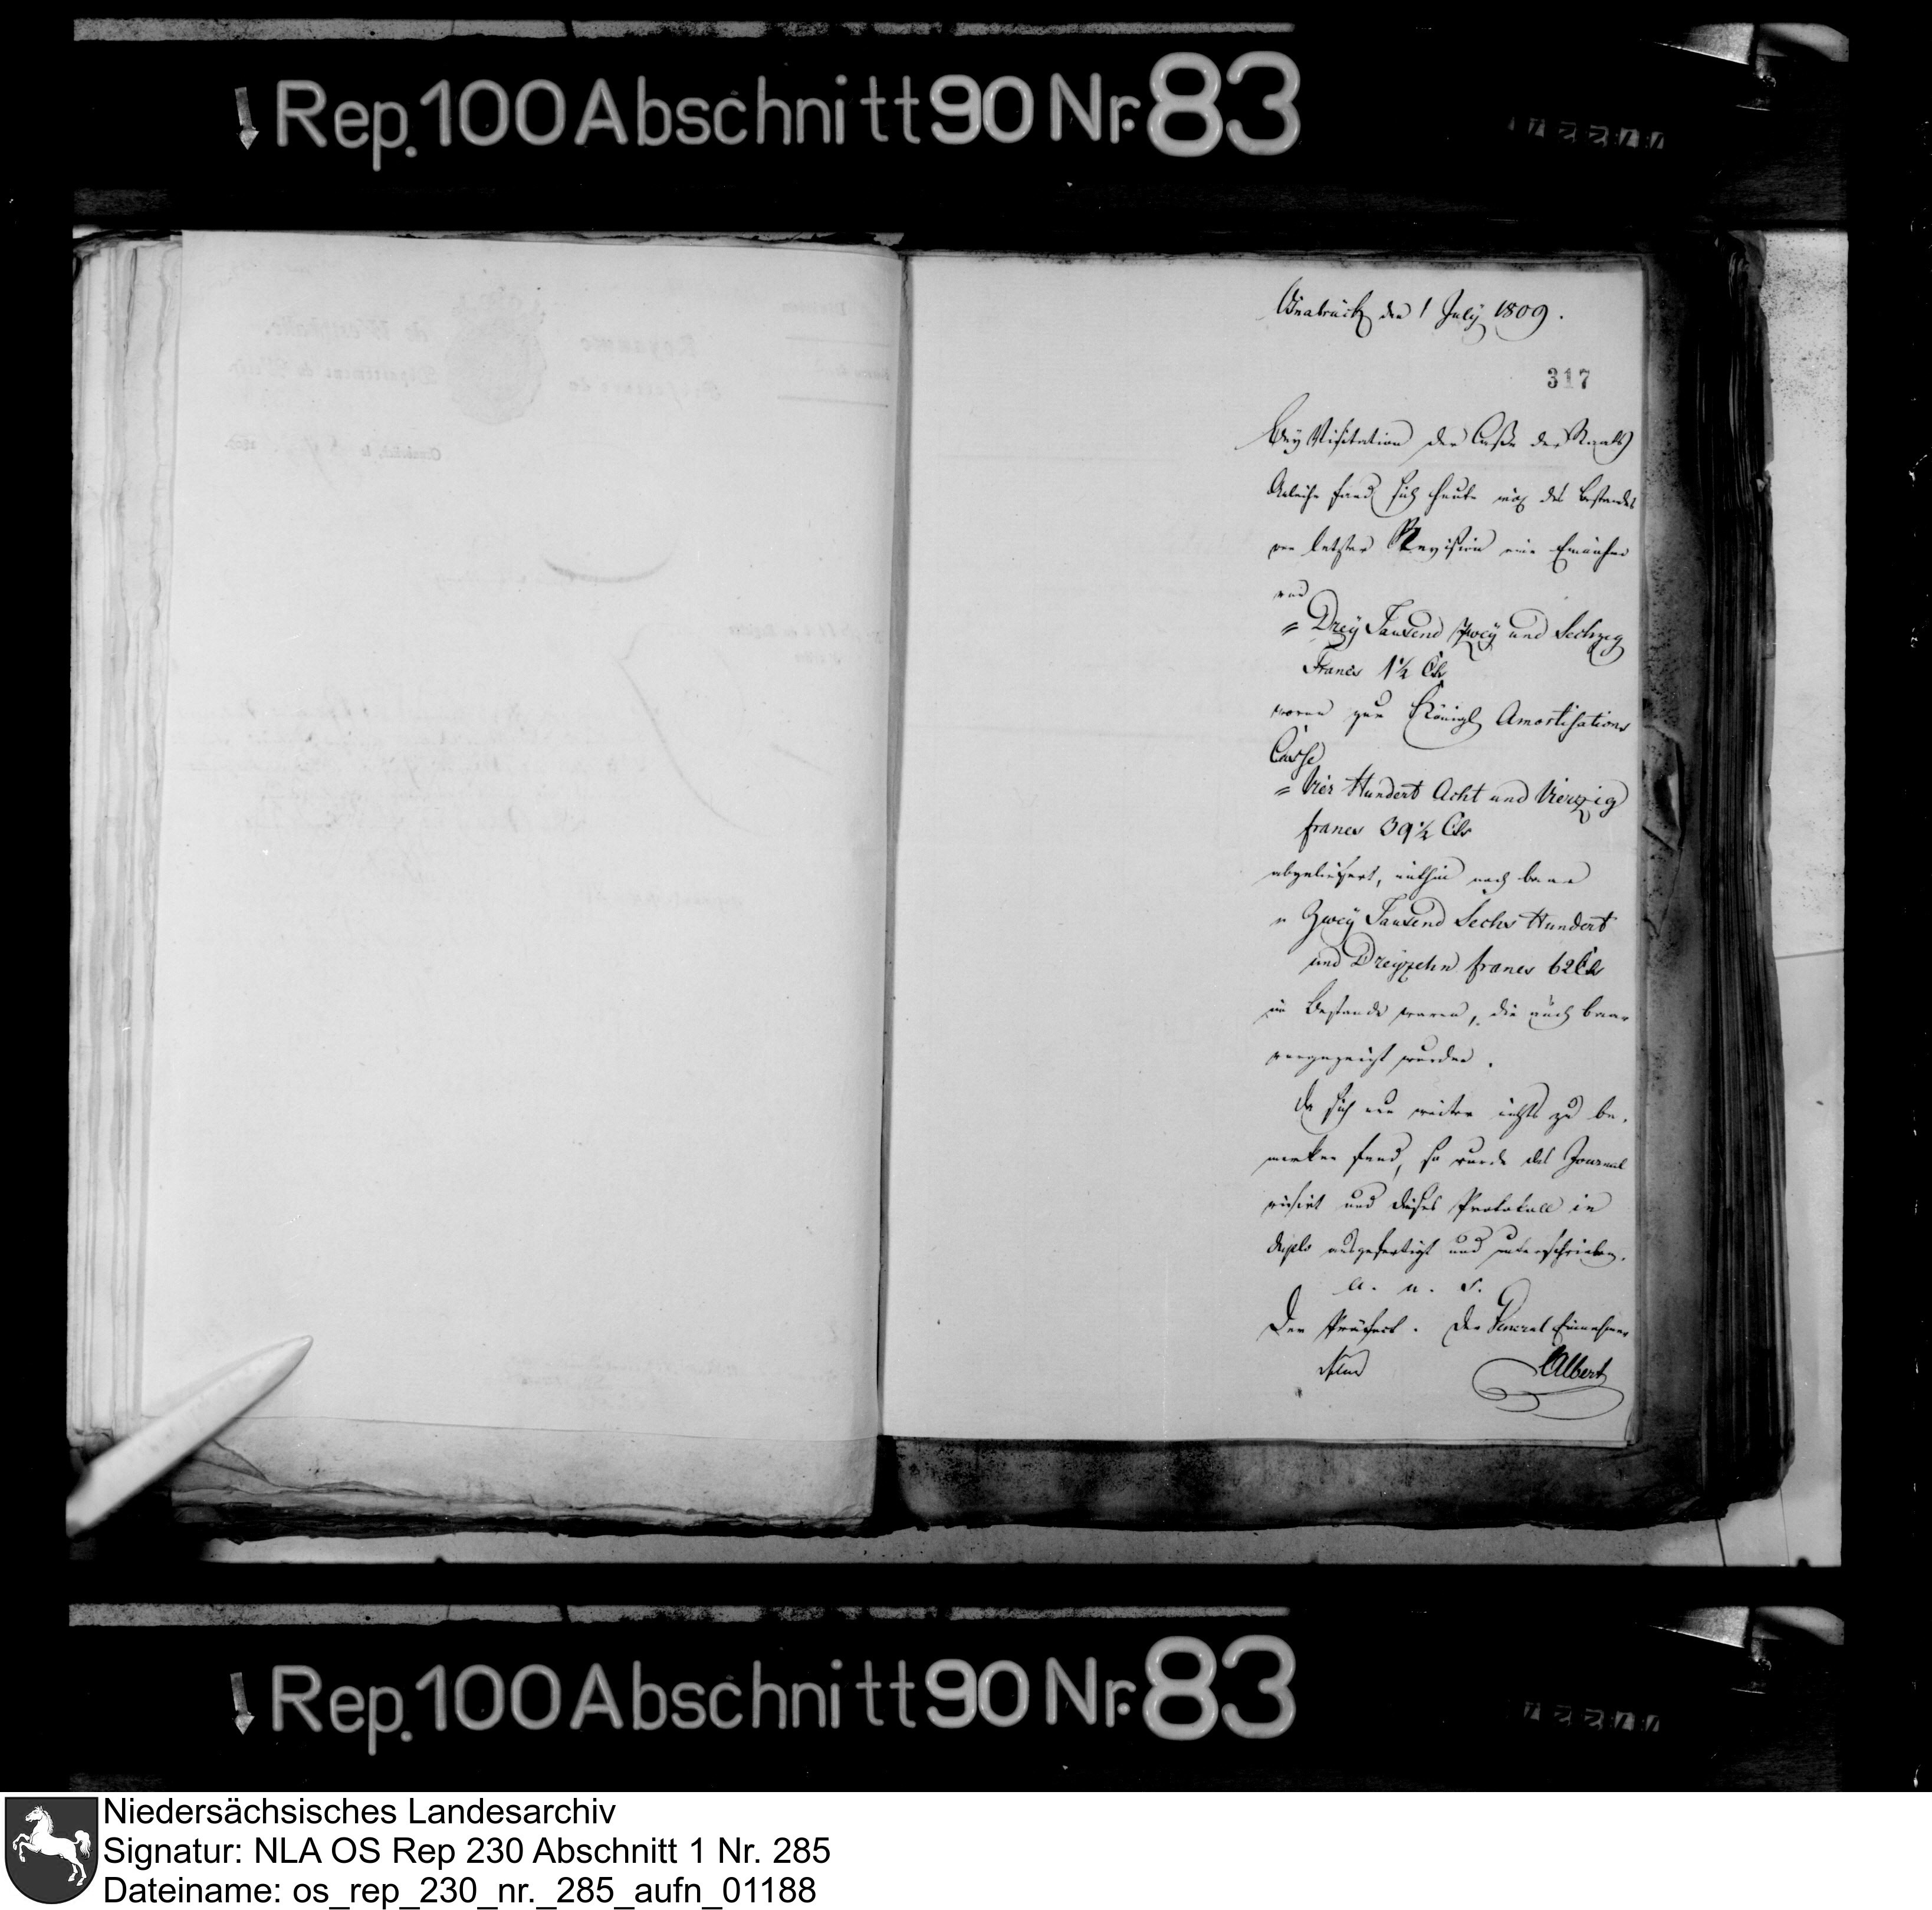 Rep. 100 Abschnitt 90 Nr. 83
Osnabrück den 1 July 1809.
317
Bey Visitation der Casse der Reichs
Anleihe fand sich heute des Bestandes
von letzter Revision eine Einnahme
von
= Drey Tausend Zwey und Sechzig
Francs 1½ Cts
wovon zur Königl Amortisations
Casse
= Vier Hundert Acht und Vierzig
francs 39½ Cts
abgeliefert, mithin noch baar
" Zwey Tausend Sechs Hundert
und Dreyzehn francs 62 Cts
in Bestande waren, die auch baar
vorgezeigt wurden.
Da sich nun weiter nichts zu be-
merken fand, so wurde das Journal
visirt und dieses Protokoll in
duplo ausgefertigt und unterschrieben.
a. u. s.
Der Präfect. Der General Einnehmer
Albert
Rep. 100 Abschnitt 90 Nr. 83
Niedersächsisches Landesarchiv
Signatur: NLA OS Rep 230 Abschnitt 1 Nr. 285
Dateiname: os_rep_230_nr._285_aufn_01188